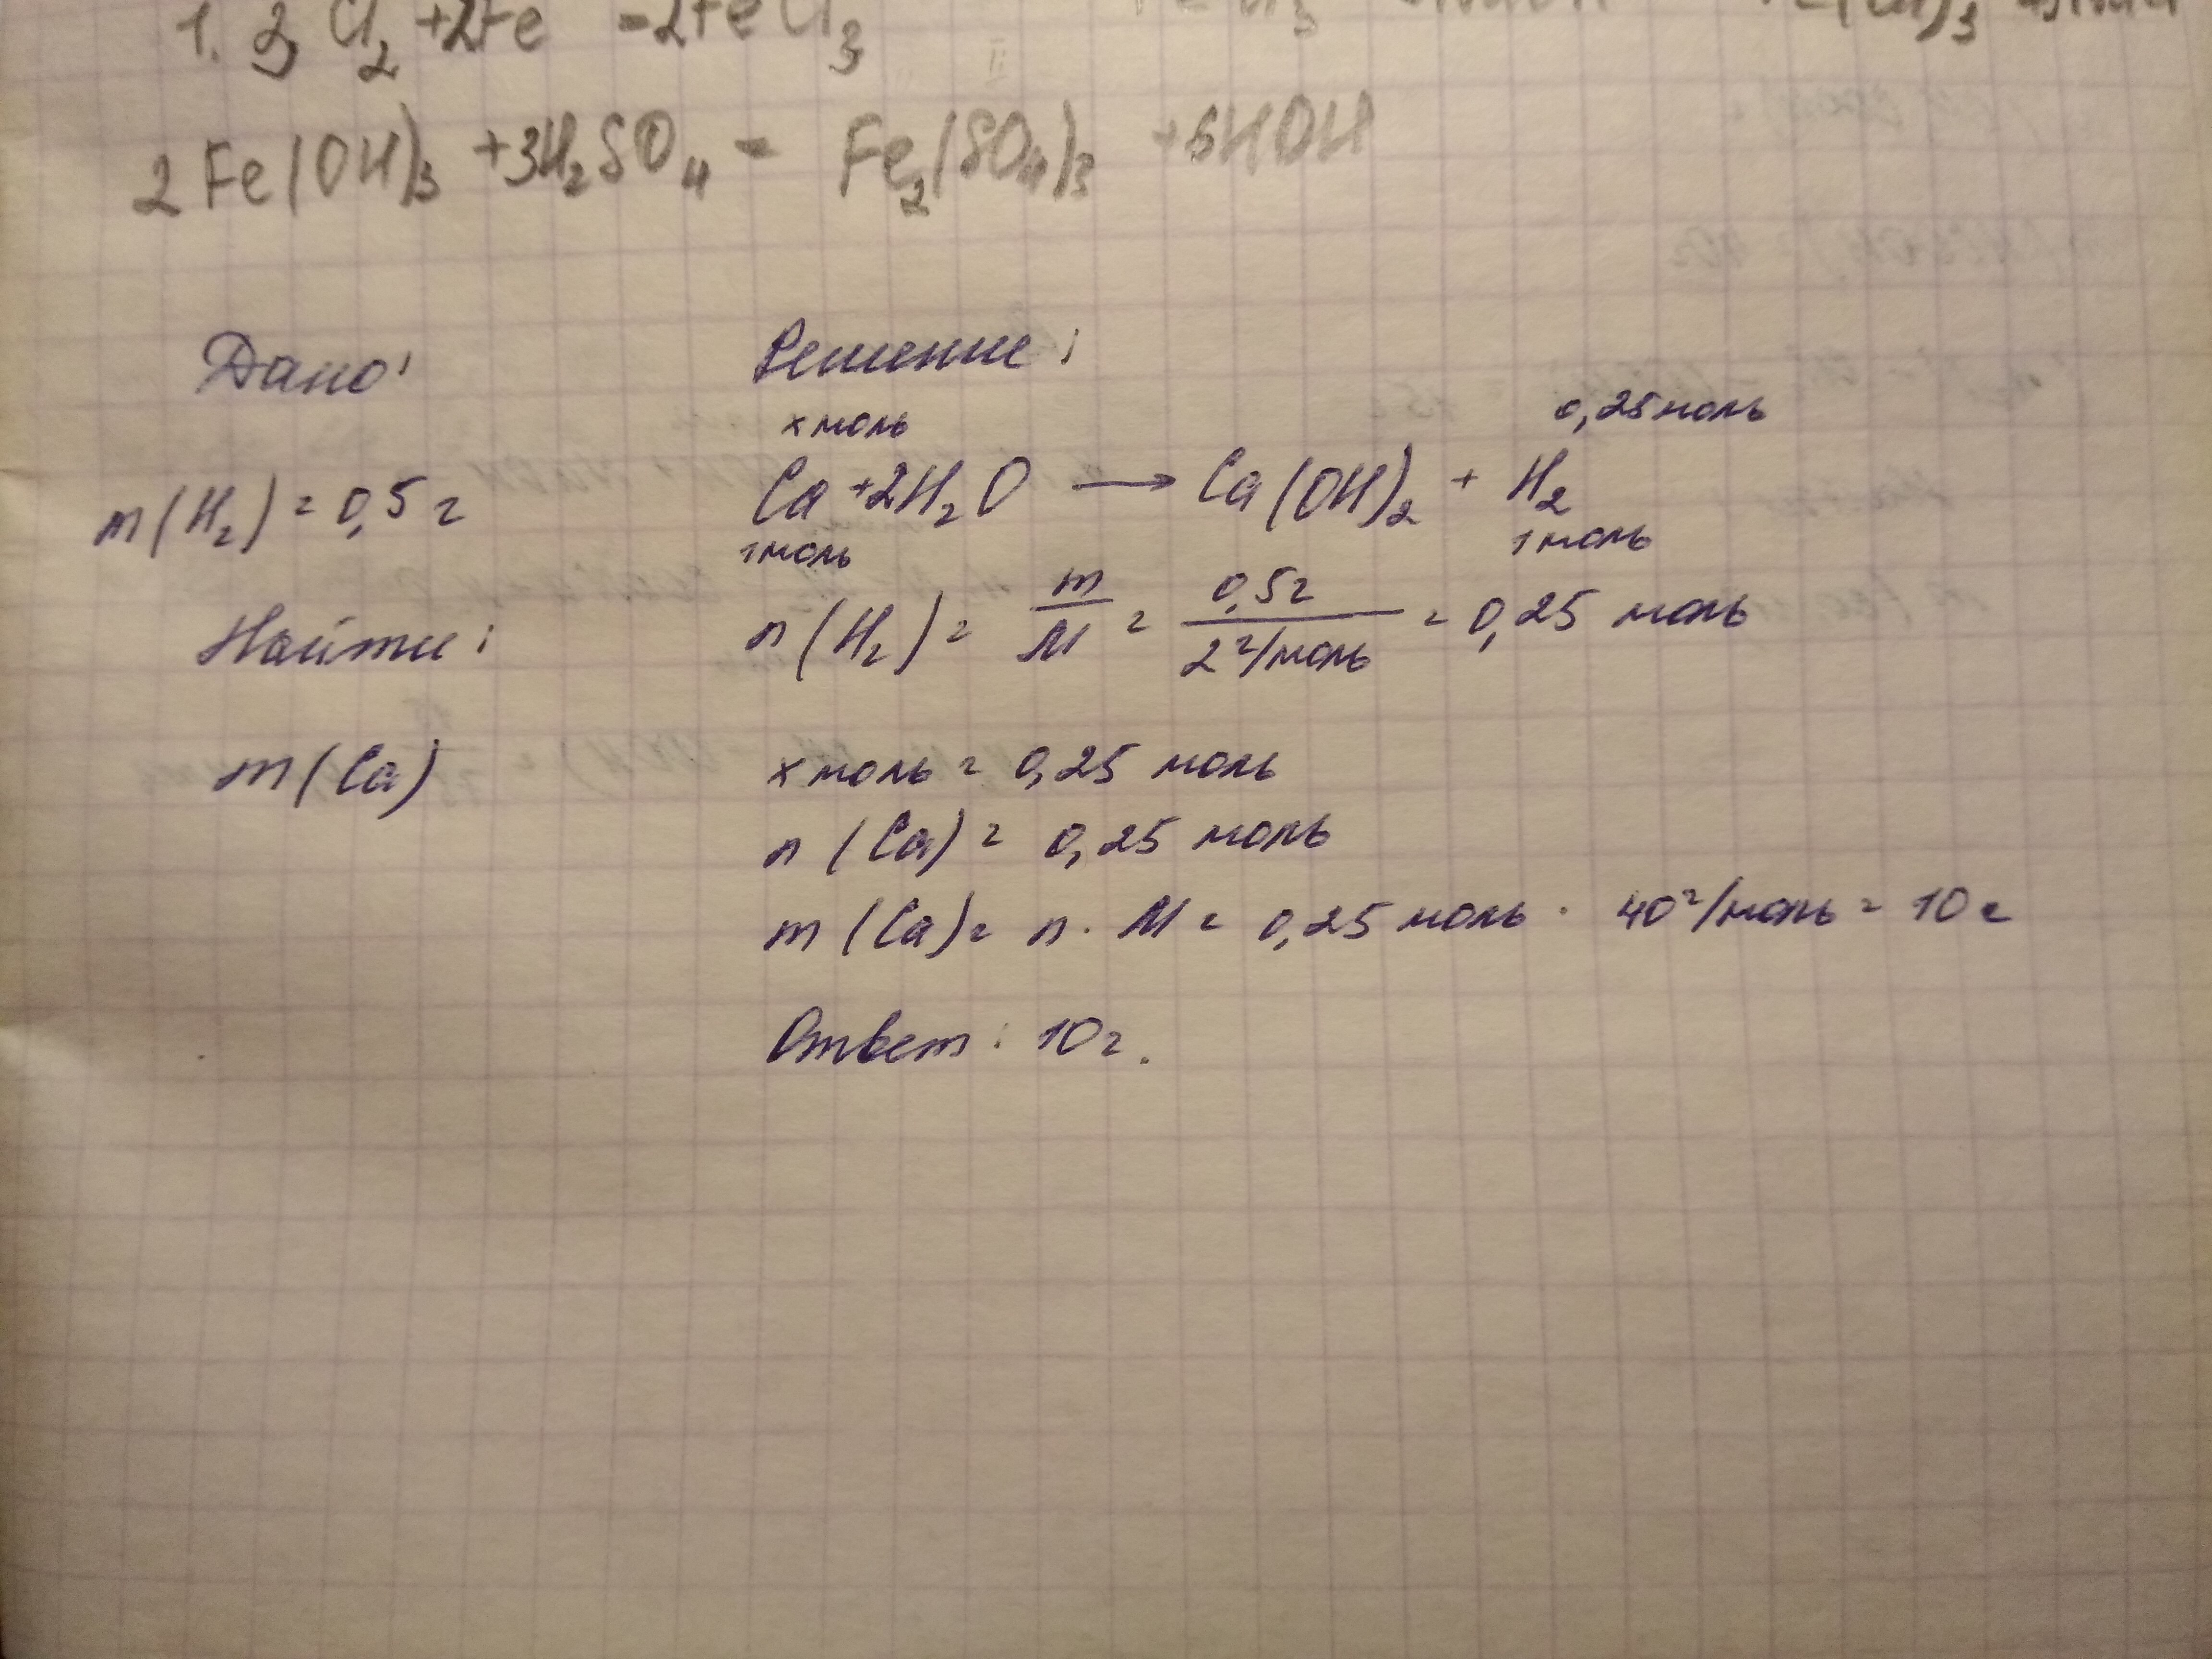 1. 3Cl₂ +2Fe =2FeCl₃
2Fe(OH)₃ +3H₂SO₄ = Fe₂(SO₄)₃ +6HOH
Дано:
Решение:
x моль 0,25 моль
m(H₂) = 0,5г
Ca +2H₂O → Ca(OH)₂ + H₂
1 моль 1 моль
Найти:
n(H₂) = m/M = 0,5г/2г/моль = 0,25 моль
m(Ca)
x моль = 0,25 моль
n(Ca) = 0,25 моль
m(Ca) = n · M = 0,25 моль · 40г/моль = 10г
Ответ: 10г.